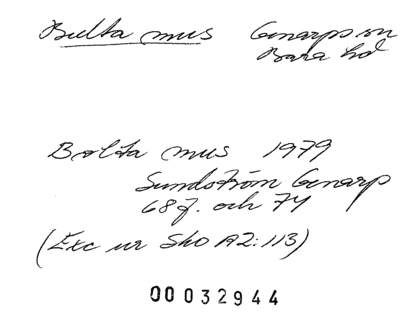 Bulta mus Genarps sn
Bara hd
Bolta mus 1979
Sundström Genarp
68f. och 74
(Exc ur Sko A2:113)
00032944